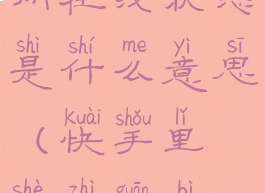 在线状态
shì shí me yì sī
是什么意思
kuài shǒu lǐ
(快手里
shè zhì guān bì